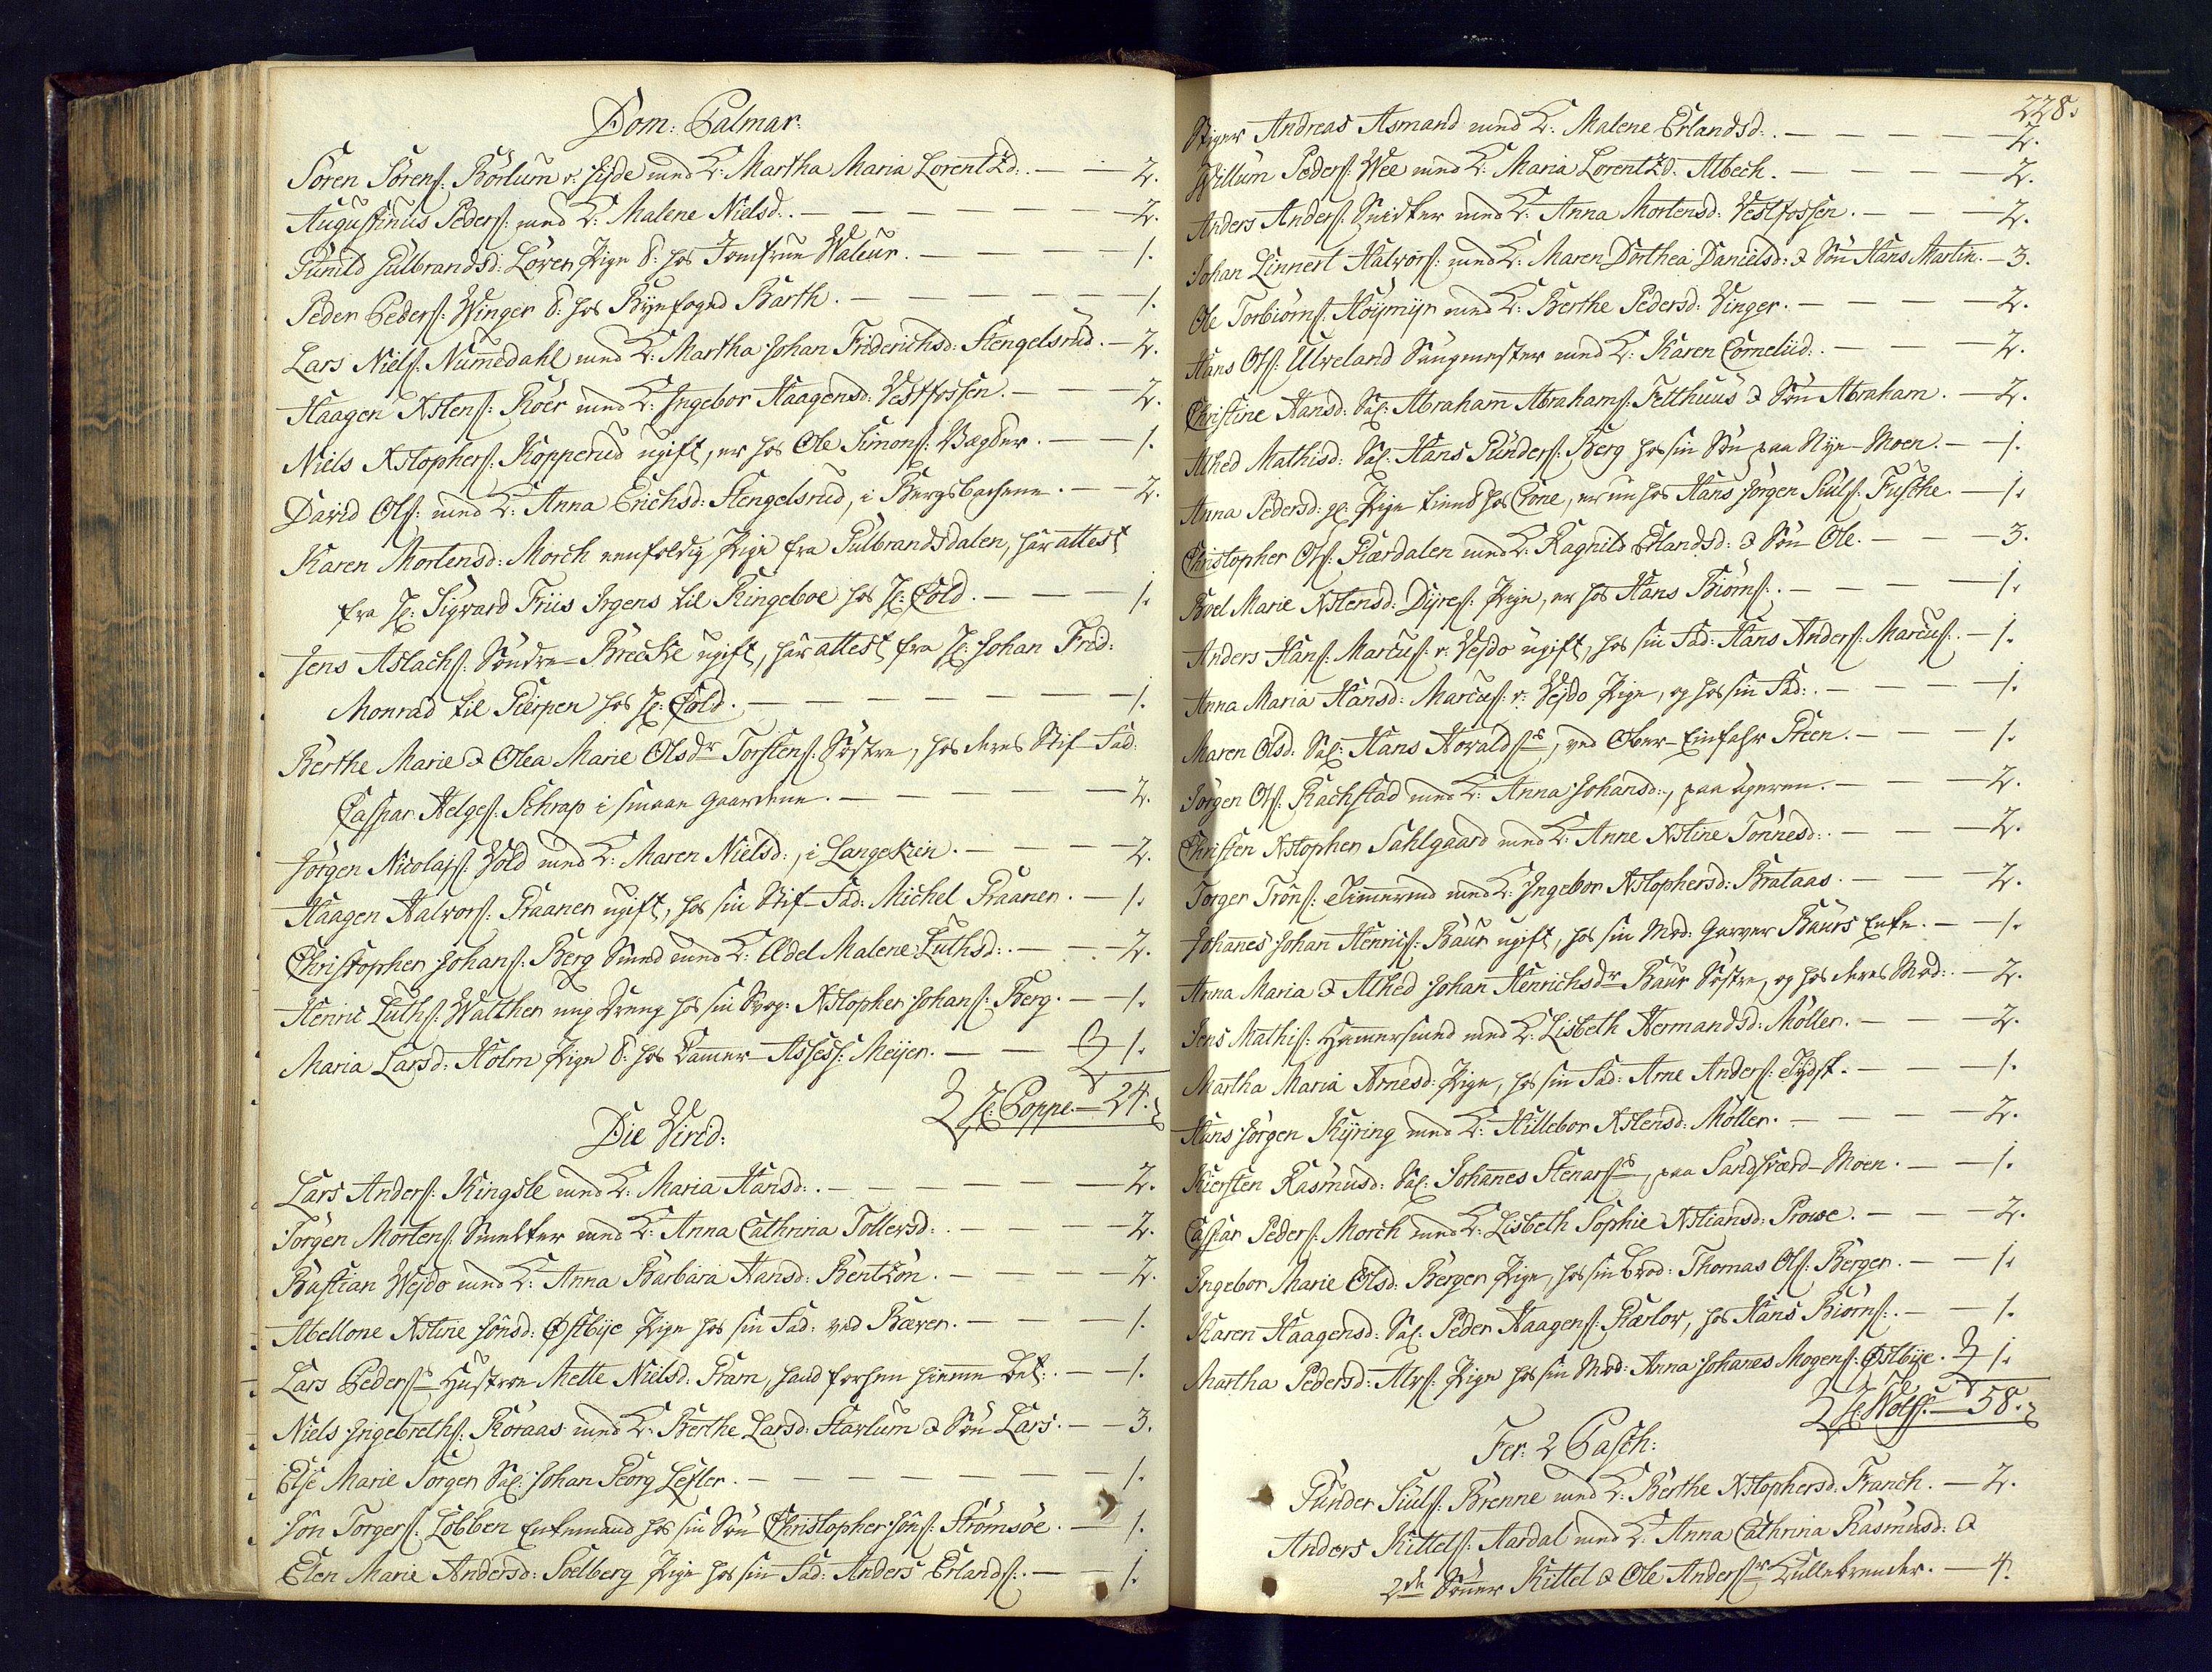 Dom: Palmar:
Sören Sörenſ: Börlum v: Heÿde med K: Martha Maria Lorentzd:. — — 2.
Auguſtinus Pederſ: med K: Malene Nielsd:. — — — — — 2.
Gunild Gulbrandsd: Löver Pige t: hos Jomfrue Waleur. — — — 1.
Peder Pederſ: Winger t: hos Byefoged Barth. — — — — 1.
Lars Nielſ: Numedahl med K: Martha Johan Friderichsd: Stengelsrud. — 2.
Haagen Xstenſ: Röer med K: Ingebor Haagensd: Vestfossen. — — 2.
Niels Xstopherſ: Kopperud ugift, er hos Ole Simonſ: Vægter. — — 1.
David Olſ: med K: Anna Erichsd: Stengelsrud, i Bergsbachene. — — 2.
Karen Mortensd: Morch eenfoldig Pige fra Gulbrandsdalen, har attest
fra Hr: Sigvard Friis Irgens til Ringeboe hos Hr: Cold. — — — 1.
Jens Aslachſ: Söndre-Brecke ugift, har attest fra Hr: Johan Frid:
Monrad til Gierpen hos Hr: Cold. — — — — — — 1.
Berthe Marie & Olea Marie Olsdr Torstenſ: Söstre, hos deres Stif-Fad:
Caspar Helgeſ: Schrap i smaae Gaardene. — — — — 2.
Jörgen Nicolajſ: Vold med K: Maren Nielsd:, i Langekien. — — — 2.
Haagen Halvorſ: Praanen ugift, hos sin Stif-Fad: Michel Praanen. — 1.
Christopher Johanſ: Berg Smed med K: Ædel Malene Luthsd:. — — 2.
Henric Luthſ: Walther ung Dreng hos sin Svog: Xstopher Johanſ: Berg. — 1.
Maria Larsd: Holm Pige t: hos Kamer-Assess: Meyer. — — 1.
Hr: Poppe. — 24.
Die Virid:
Lars Anderſ: Kingsle med K: Maria Hansd:. — — — — 2.
Törgen Mortenſ: Smelter med K: Anna Cathrina Tollevsd: — — — 2.
Bastian Wesdo med K: Anna Barbara Hansd: Bentzön. — — — 2.
Abellone Xstine Jönsd: Østbye Pige hos sin Fad: ved Bæver. — — — 1.
Lars Pederſs Hustroe Mette Nielsd: Kram, hand forhen hiemme bet:. — 1.
Niels Ingebrethſ: Röraas med K: Berthe Larsd: Harlum & Sön Lars. — 3.
Else Marie Torger Sal: Johan Georg Lesler. — — — — — 1.
Jön Torgerſ: Lobben Enkemand hos sin Sön Christopher Jönſ: Strömsöe. — 1.
Elen Marie Andersd: Soelberg Pige hos sin Fad: Anders Erlandſ:. — 1.
228.
Stiger Andreas Asmand med K: Malene Erlandsd:. — — — 2.
Willum Pederſ: Wee med K: Maria Lorentzd: Albech. — — — 2.
Anders Anderſ: Snidker med K: Anna Mortensd: Vestfossen. — — 2.
Johan Linnert Halvorſ: med K: Maren Dorthea Danielsd: & Sön Hans Martin. — 3.
Ole Torbiörnſ: Höymyr med K: Berthe Pedersd: Vinger. — — — 2.
Hans Olſ: Ulveland Saugmester med K: Karen Corneliid:. — — 2.
Christine Hansd: Sal: Abraham Abrahamſ: Fetthuus & Sön Abraham. — 2.
Alhed Mathisd: Sal: Hans Gunderſ: Berg hos sin Sön paa Nye-Moen. — 1.
Anna Pedersd: gl: Pige tiendt hos Cone, er nu hos Hans Jörgen Siulſ: Fusche. — 1.
Christopher Olſ: Kærdalen med K: Ragnild Erlandsd: & Sön Ole. — — 3.
Boel Marie Xstensd: Dyreſ: Pige, er hos Hans Biörnſ:. — — — 1.
Anders Hanſ: Marcuſ: v: Vesdo ugift, hos sin Fad: Hans Anderſ: Marcuſ:. — 1.
Anna Maria Hansd: Marcuſ: v: Vesdo Pige, og hos sin Fad:. — — — 1.
Maren Olsd: Sal: Hans Hovaldſs, ved Ober-Einfahr Steen. — — — 1.
Jörgen Olſ: Rachstad med K: Anna Johansd:, paa Ageren. — — — 2.
Christen Xstopher Sahlgaard med K: Anne Xstine Tönnesd:. — — 2.
Torger Trönſ: Timermd med K: Ingebor Xstophersd: Brataas. — — 2.
Johannes Johan Henricſ: Baur ugift, hos sin Mod: Garver Baurs Enke. — 1.
Anna Maria & Alhed Johan Henrichsdr Baur Söstre, og hos deres Mod:. — 2.
Jens Mathiſ: Hammersmed med K: Lisbeth Hermandsd: Möller. — — 2.
Martha Maria Arnesd: Pige, hos sin Fad: Arne Anderſ: Tydsk. — — 1.
Hans Jörgen Kyring med K: Hillebor Xstensd: Möller. — — — 2.
Kiersten Rasmusd: Sal: Johannes Stenarſs, paa Sandsværd-Moen. — — 1.
Caspar Pederſ: Morch med K: Lisbeth Sophie Xstiansd: Prowe. — — 2.
Ingebor Marie Olsd: Berger Pige, hos sin Brod: Thomas Olſ: Berger. — 1.
Karen Haagensd: Sal: Peder Haagenſ: Kærlov, hos Hans Biörnſ:. — — 1.
Martha Pedersd: Alvſ: Pige hos sin Mod: Anna Johanes Mogenſ: Østbye. 1.
Hr: Wolff. — 58.
Fer: 2 Pasch:
Gunder Siulſ: Brenne med K: Berthe Xstophersd: Franch. — 2.
Anders Kittelſ: Aardal med K: Anna Cathrina Rasmusd: &
2de Sönner Kittel & Ole Anderſr Kullebrender. — 4.